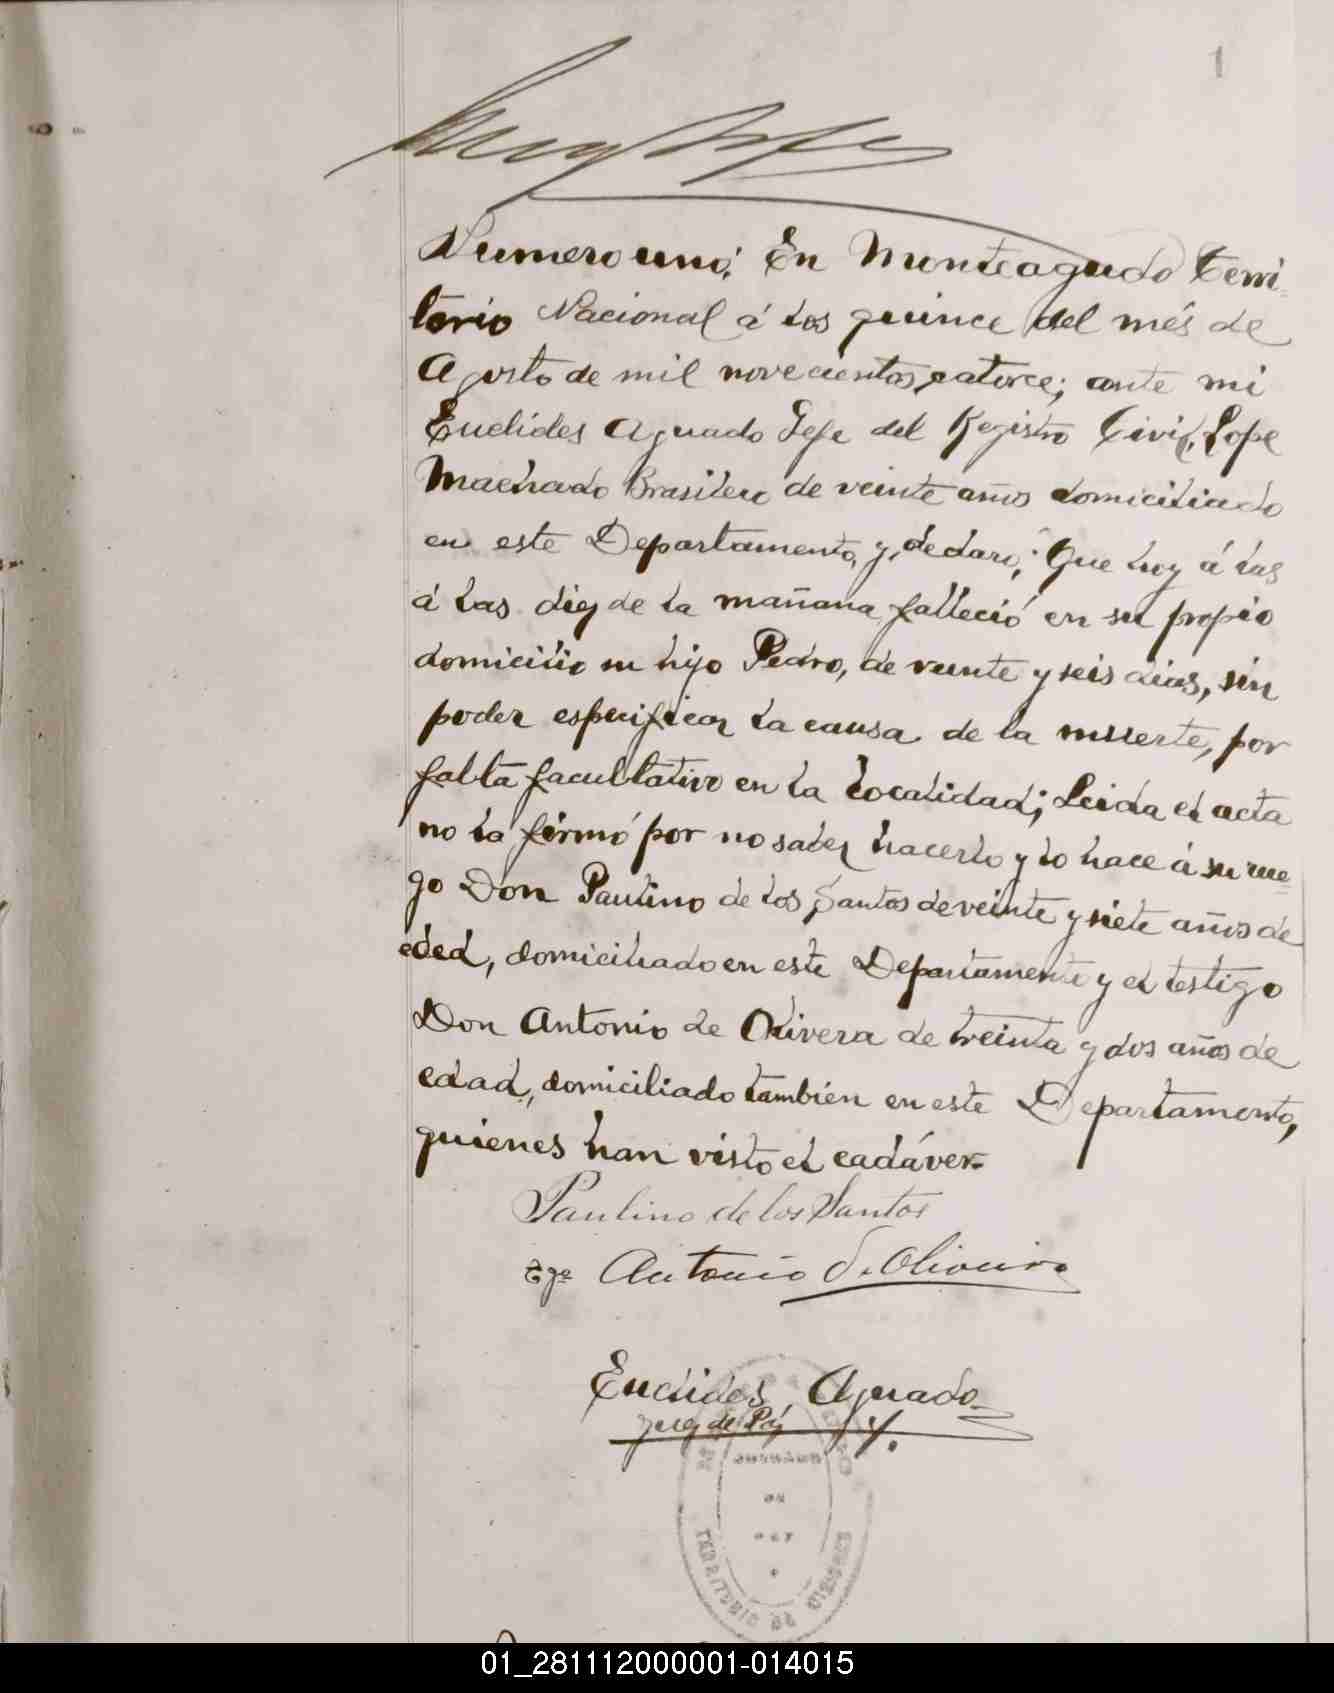 1
Numero uno; En Monteagudo Terri-
torio Nacional á los quince del més de
Agosto de mil novecientos catorce; ante mi
Euclides Aguado Gefe del Registro Civil, Lope
Machado Brasilero de veinte años domiciliado
en este Departamento, y, declaró; Que hoy á las
á las diez de la mañana falleció en su propio
domicilio su hijo Pedro, de veinte y seis dias, sin
poder especificar la causa de la muerte, por
falta facultativo en la localidad; Leida el acta
no la firmó por no saber hacerlo y lo hace á su rue-
go Don Paulino de los Santos de veinte y siete años de
eded, domiciliado en este Departamento y el testigo
Don Antonio de Olivera de treinta y dos años de
edad, domiciliado también en este Departamento,
quienes han visto el cadáver.
Paulino de los Santos
Tgo Antonio d. Oliveira
Euclides Aguado
Juez de Paz
JUZGADO
DE
PAZ
TERRITORIO DE MISIONES
01_281112000001-014015